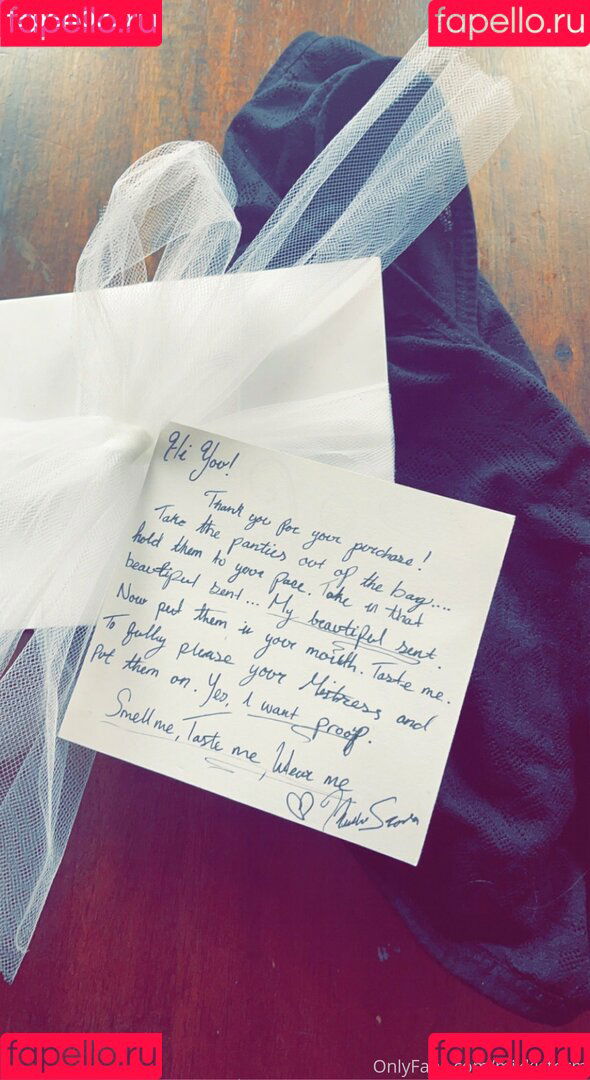 fapello.ru
fapello.ru
Hi You!
Thank you for your purchase!
Take the panties out of the bag....
hold them to your face. Take in that
beautiful sent... My beautiful sent.
Now put them in your mouth. Taste me.
To fully please your Mistress and
Put them on. Yes, I want proof.
Smell me, Taste me, Wear me
fapello.ru
fapello.ru